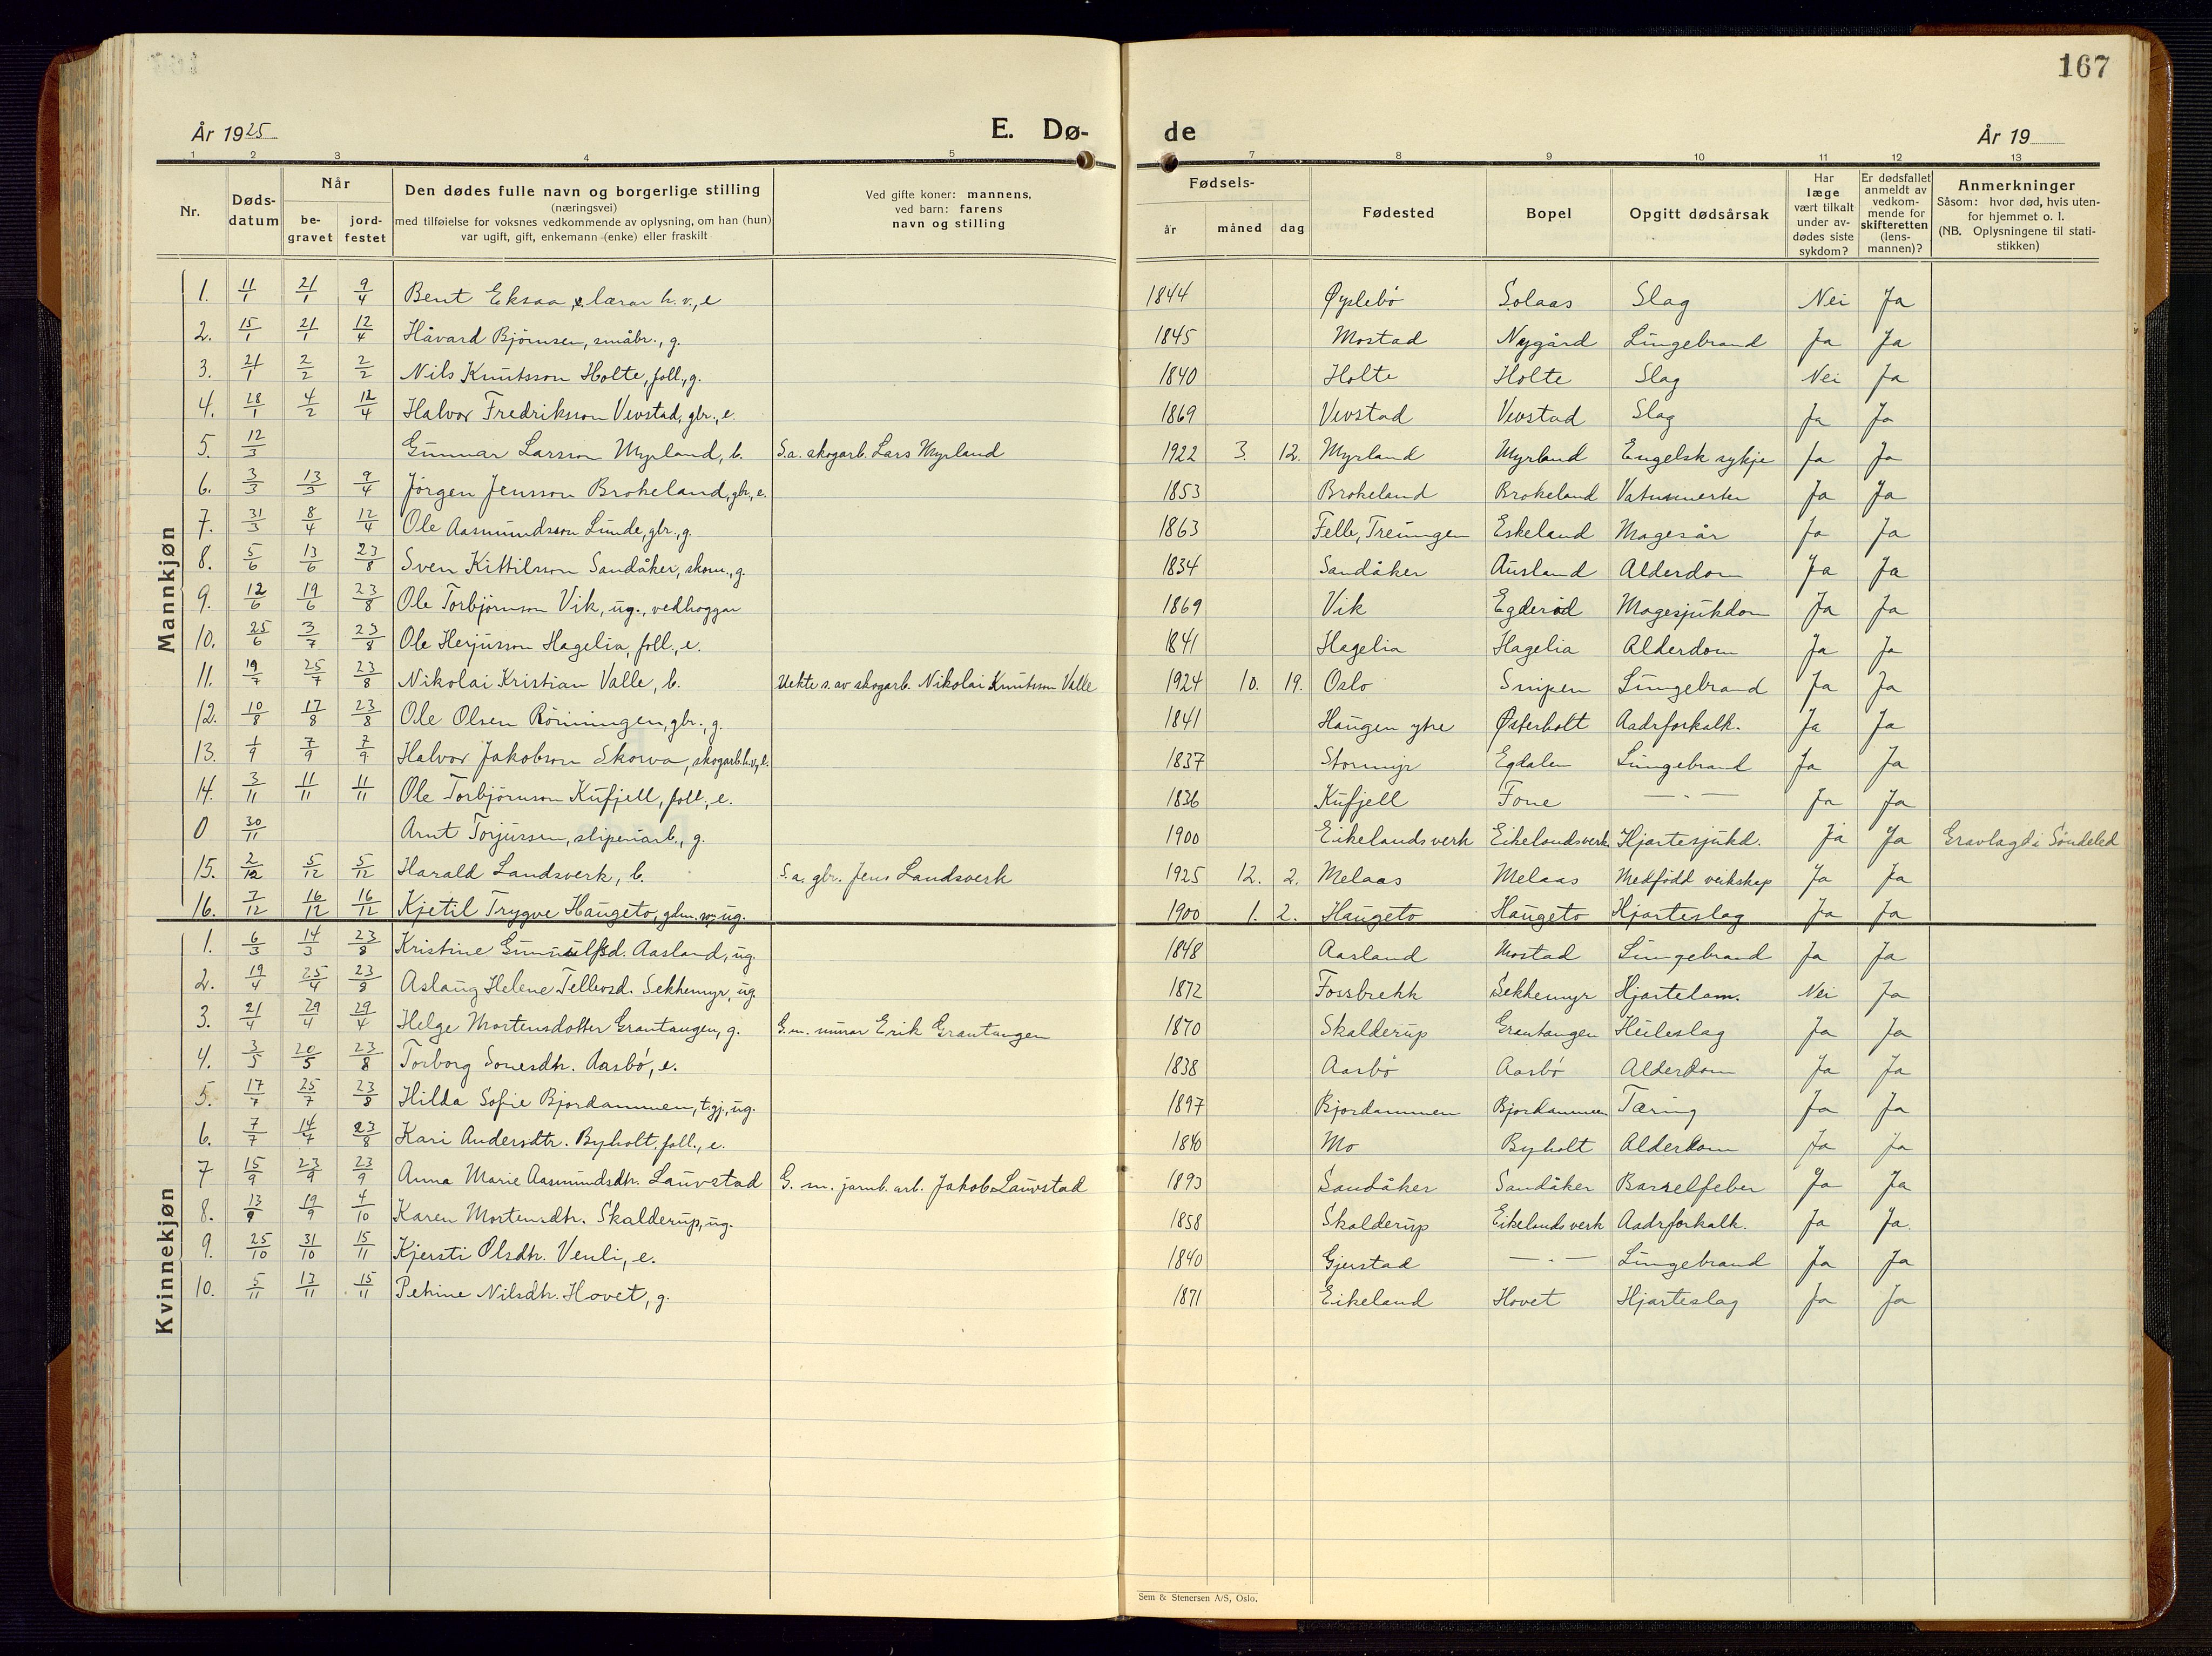 167
År 1925 E. Dø- de År 19
1 2 3 4 5 7 8 9 10 11 12 13
Nr. Døds-datum Når be-gravet jord-festet Den dødes fulle navn og borgerlige stilling (næringsvei) med tilføielse for voksnes vedkommende av oplysning, om han (hun) var ugift, gift, enkemann (enke) eller fraskilt Ved gifte koner: mannens, ved barn: farens navn og stilling Fødsels- år måned dag Fødested Bopel Opgitt dødsårsak Har læge vært tilkalt under av-dødes siste sykdom? Er dødsfallet anmeldt av vedkom-mende for skifteretten (lens-mannen)? Anmerkninger Såsom: hvor død, hvis uten-for hjemmet o. l. (NB. Oplysningene til stati-stikken)
Mannkjøn
1. 11/1 21/1 9/4 Bent Eksaa, lærar h. v., e 1844 Øyslebø Solaas Slag Nei Ja
2. 15/1 21/1 12/4 Håvard Bjørnsen, småbr., g. 1845 Mostad Nygård Lungebrand Ja Ja
3. 21/1 2/2 2/2 Nils Knutsson Holte, foll., g. 1840 Holte Holte Slag Nei Ja
4. 28/1 4/2 12/4 Halvor Fredriksson Vevstad, gbr., e. 1869 Vevstad Vevstad Slag Ja Ja
5. 12/3 Gunnar Larsson Myrland, b. S. a. skogarb. Lars Myrland 1922 3. 12. Myrland Myrland Engelsk sykje Ja Ja
6. 3/3 13/3 9/4 Jørgen Jensson Brokeland, gbr., e. 1853 Brokeland Brokeland Ja Ja
7. 31/3 8/4 12/4 Ole Aasmundsson Lunde, gbr., g. 1863 Felle, Treungen Eskeland Magesår Ja Ja
8. 5/6 13/6 23/8 Sven Kittilsson Sandåker, skom., g. 1834 Sandåker Ausland Alderdom Ja Ja
9. 12/6 19/6 23/8 Ole Torbjørnson Vik, ug., vedhoggar 1869 Vik Egderød Magesjukdom Ja Ja
10. 25/6 3/7 23/8 Ole Herjusson Hagelia, foll., e. 1841 Hagelia Hagelia Alderdom Ja Ja
11. 19/7 25/7 23/8 Nikolai Kristian Valle, b. Uekte s. av skogarb. Nikolai Knutsson Valle 1924 10. 19. Oslo Snipen Lungebrand Ja Ja
12. 10/8 17/8 23/8 Ole Olsen Rønningen, gbr., g. 1841 Haugen ytre Østerholt Aadrforkalk. Ja Ja
13. 1/9 7/9 7/9 Halvor Jakobson Skorva, skogarb. h. v., e. 1837 Stormyr Egdalen Lungebrand Ja Ja
14. 3/11 11/11 11/11 Ole Torbjørnson Kufjell, foll., e. 1836 Kufjell Fone — . — Ja Ja
0 30/11 Arnt Torjussen, sliperiarb., g. 1900 Eikelands verk Eikelandsverk Hjartesjukd. Ja Ja Gravlagd i Søndeled
15. 2/12 5/12 5/12 Harald Landsverk, b. S. a. gbr. Jens Landsverk 1925 12. 2. Melaas Melaas Medfødd veikskap Ja Ja
16. 7/12 16/12 16/12 Kjetil Trygve Haugeto, gdm. son, ug. 1900 1. 2. Haugeto Haugeto Hjarteslag Ja Ja
Kvinnekjøn
1. 6/3 14/3 23/8 Kristine Gunnulfsd. Aasland, ug. 1848 Aasland Mostad Lungebrand Ja Ja
2. 19/4 25/4 23/8 Aslaug Helene Tellevsd. Sekkemyr, ug. 1872 Fossbrekk Sekkemyr Hjartelam. Nei Ja
3. 21/4 29/4 29/4 Helge Mortensdotter Grantangen, g. G. m. murar Erik Grantangen 1870 Skalderup Grantangen Heileslag Ja Ja
4. 3/5 20/5 23/8 Torborg Tonesdtr. Aasbø, e. 1838 Aasbø Aasbø Alderdom Ja Ja
5. 17/7 25/7 23/8 Hilda Sofie Bjordammen, t.gj., ug. 1897 Bjordammen Bjordammen Tæring Ja Ja
6. 7/7 14/7 23/8 Kari Andersdtr. Byholt, foll., e. 1840 Mo Byholt Alderdom Ja Ja
7 15/9 23/9 23/9 Anna Marie Aasmundsdtr. Lauvstad G. m. jarnb. arb. Jakob Lauvstad 1893 Sandåker Sandåker Barselfeber Ja Ja
8. 13/9 19/9 4/10 Karen Mortensdtr. Skalderup, ug. 1858 Skalderup Eikelands verk Aadrforkalk. Ja Ja.
9. 25/10 31/10 15/11 Kjersti Olsdtr. Venli, e. 1840 Gjerstad — . — Lungebrand Ja Ja
10. 5/11 13/11 15/11 Petrine Nilsdtr. Hovet, g. 1871 Eikeland Hovet Hjarteslag Ja Ja
Sem & Stenersen A/S, Oslo.